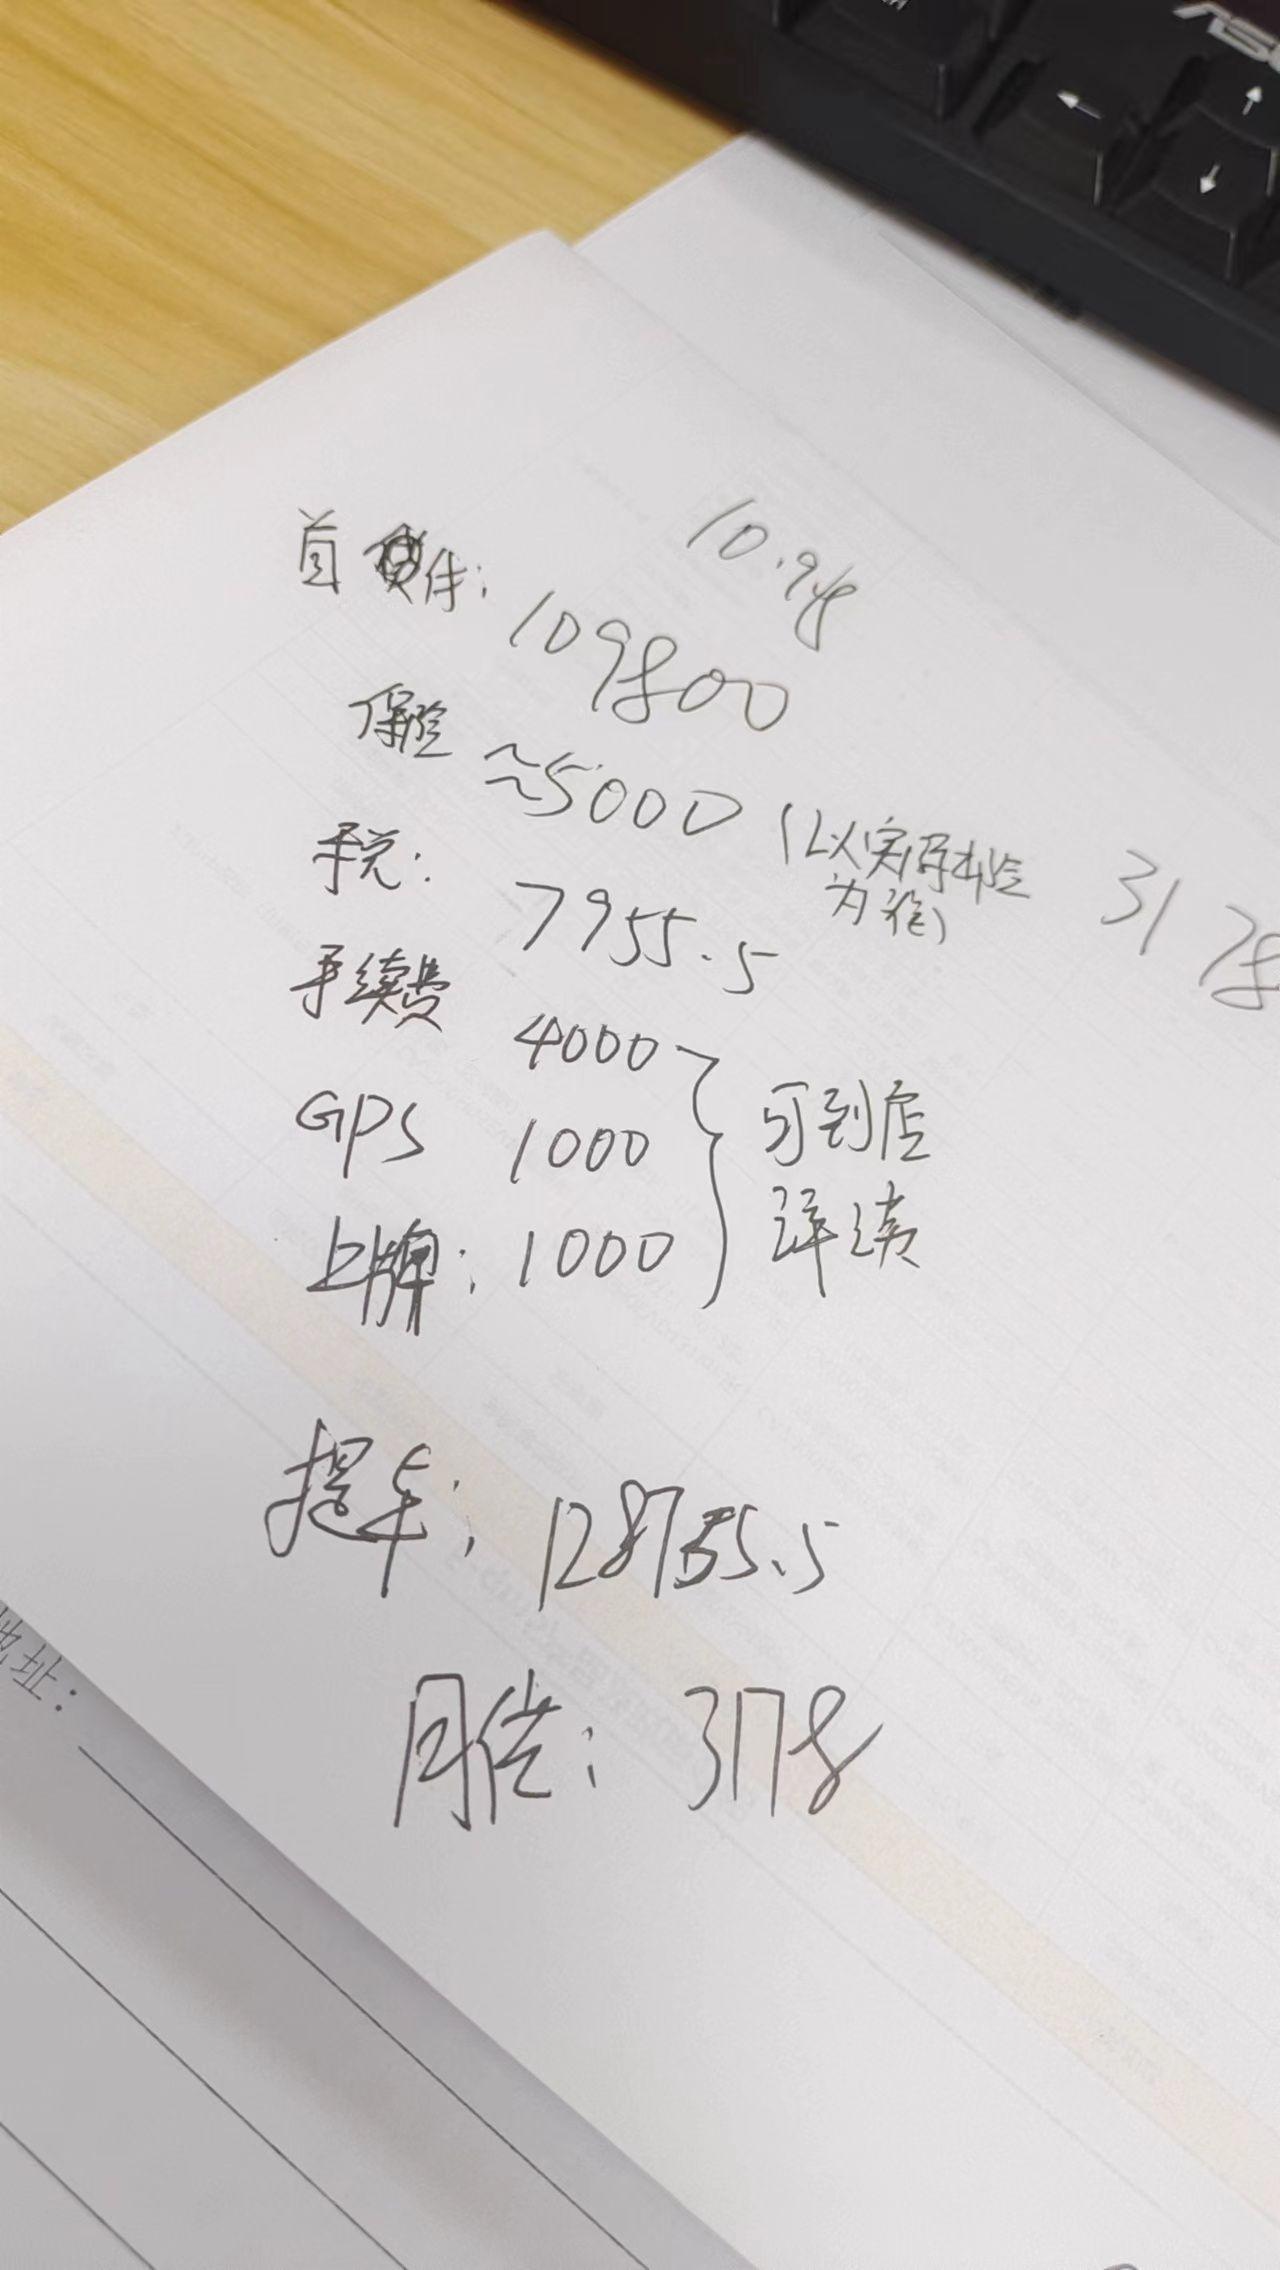 10.98
首付: 109800
保险 ≈5000 (以实际出险
为准)
3178
税: 7955.5
手续费 4000
GPS 1000
上牌: 1000
可到店
详谈
提车: 128755.5
月供: 3178
地址: